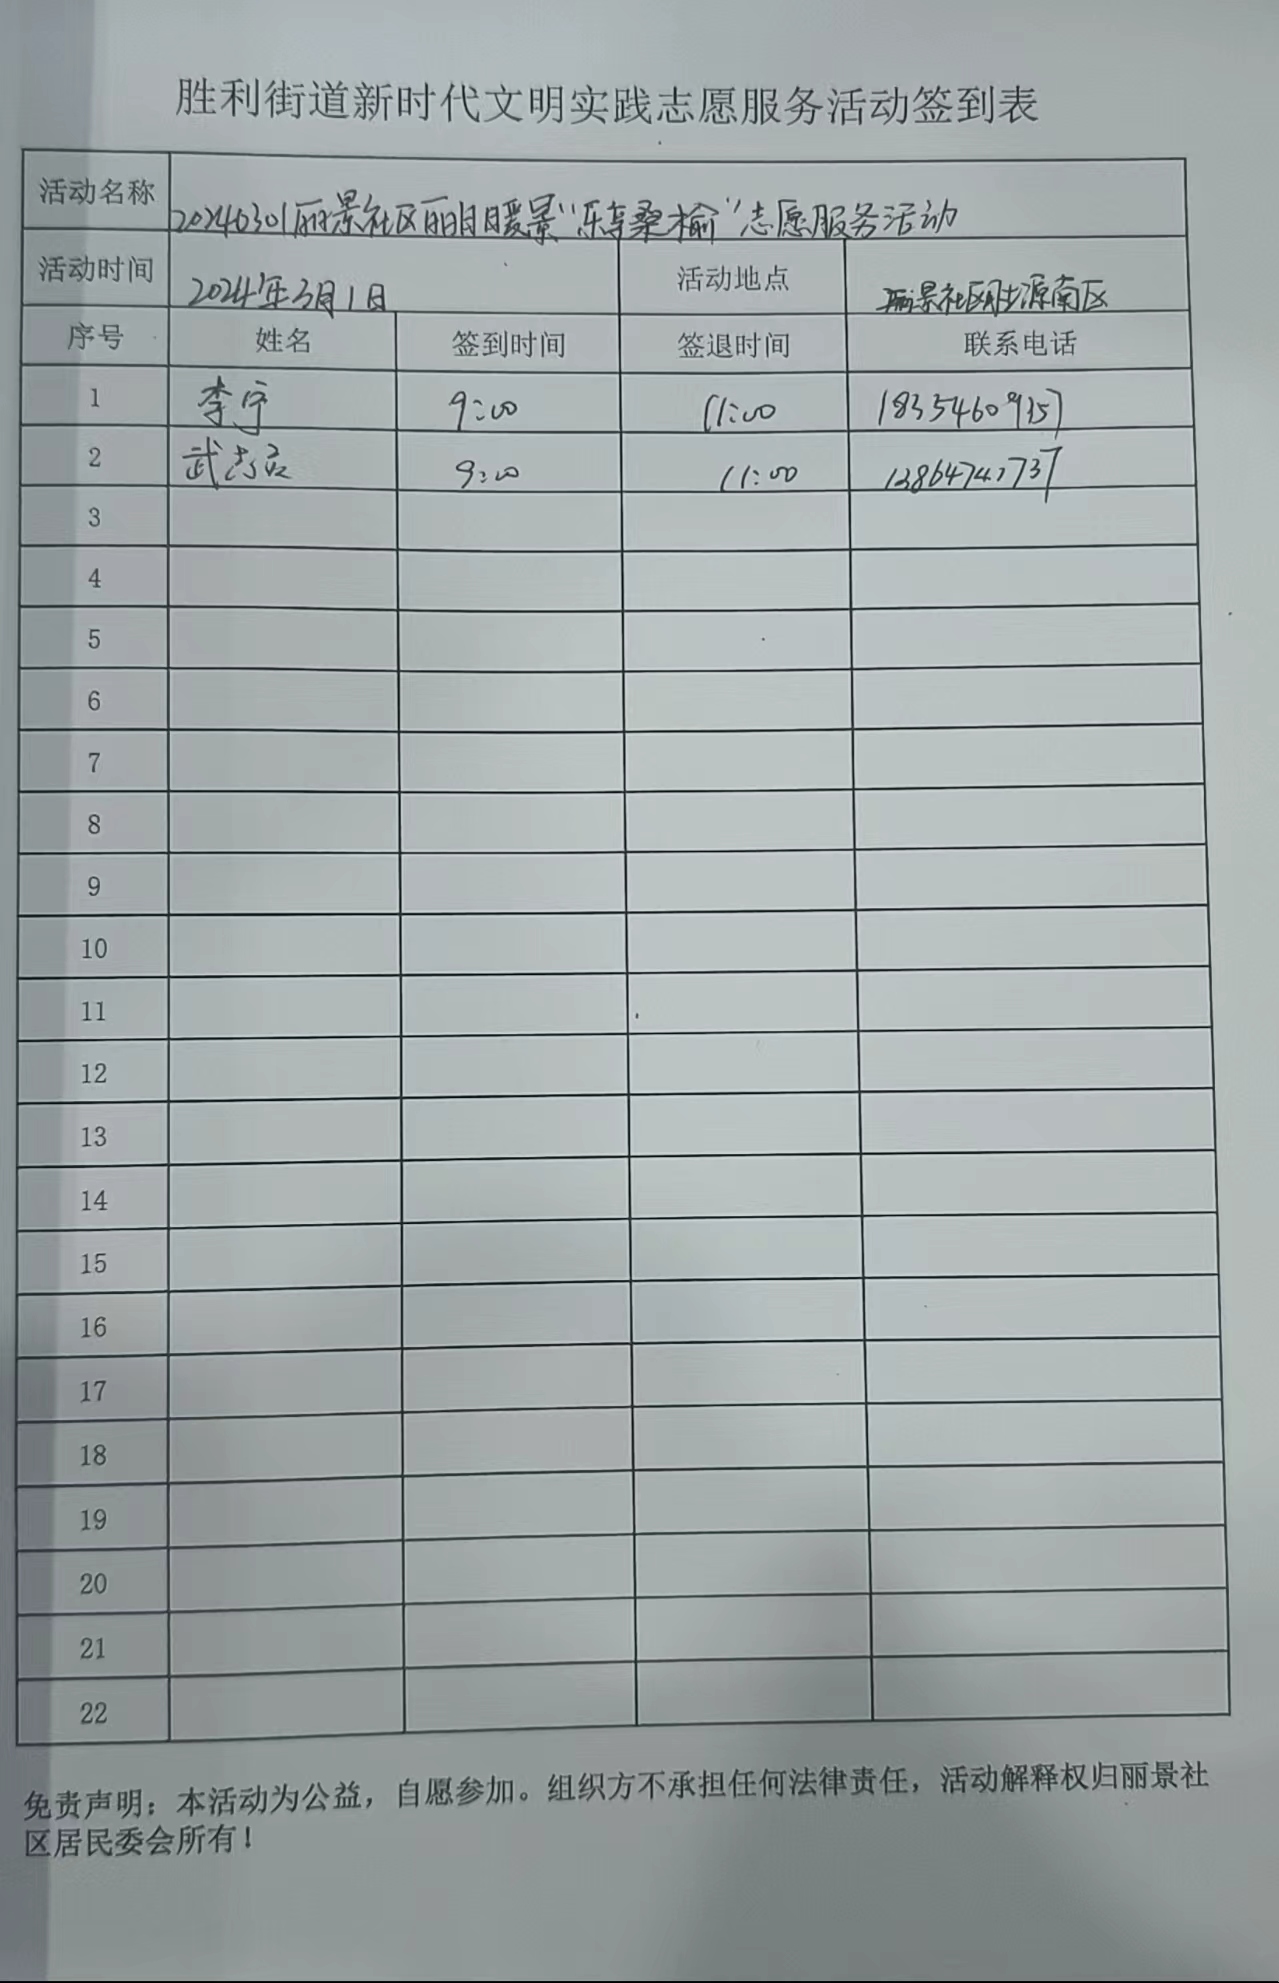 胜利街道新时代文明实践志愿服务活动签到表
活动名称 20240301丽景社区丽日暖景“乐享桑榆”志愿服务活动
活动时间 2024年3月1日 活动地点 丽景社区胜源南区
序号 姓名 签到时间 签退时间 联系电话
1 李宁 9:00 11:00 18354609157
2 武 9:00 11:00
3
4
5
6
7
8
9
10
11
12
13
14
15
16
17
18
19
20
21
22
免责声明：本活动为公益，自愿参加。组织方不承担任何法律责任，活动解释权归丽景社
区居民委会所有！